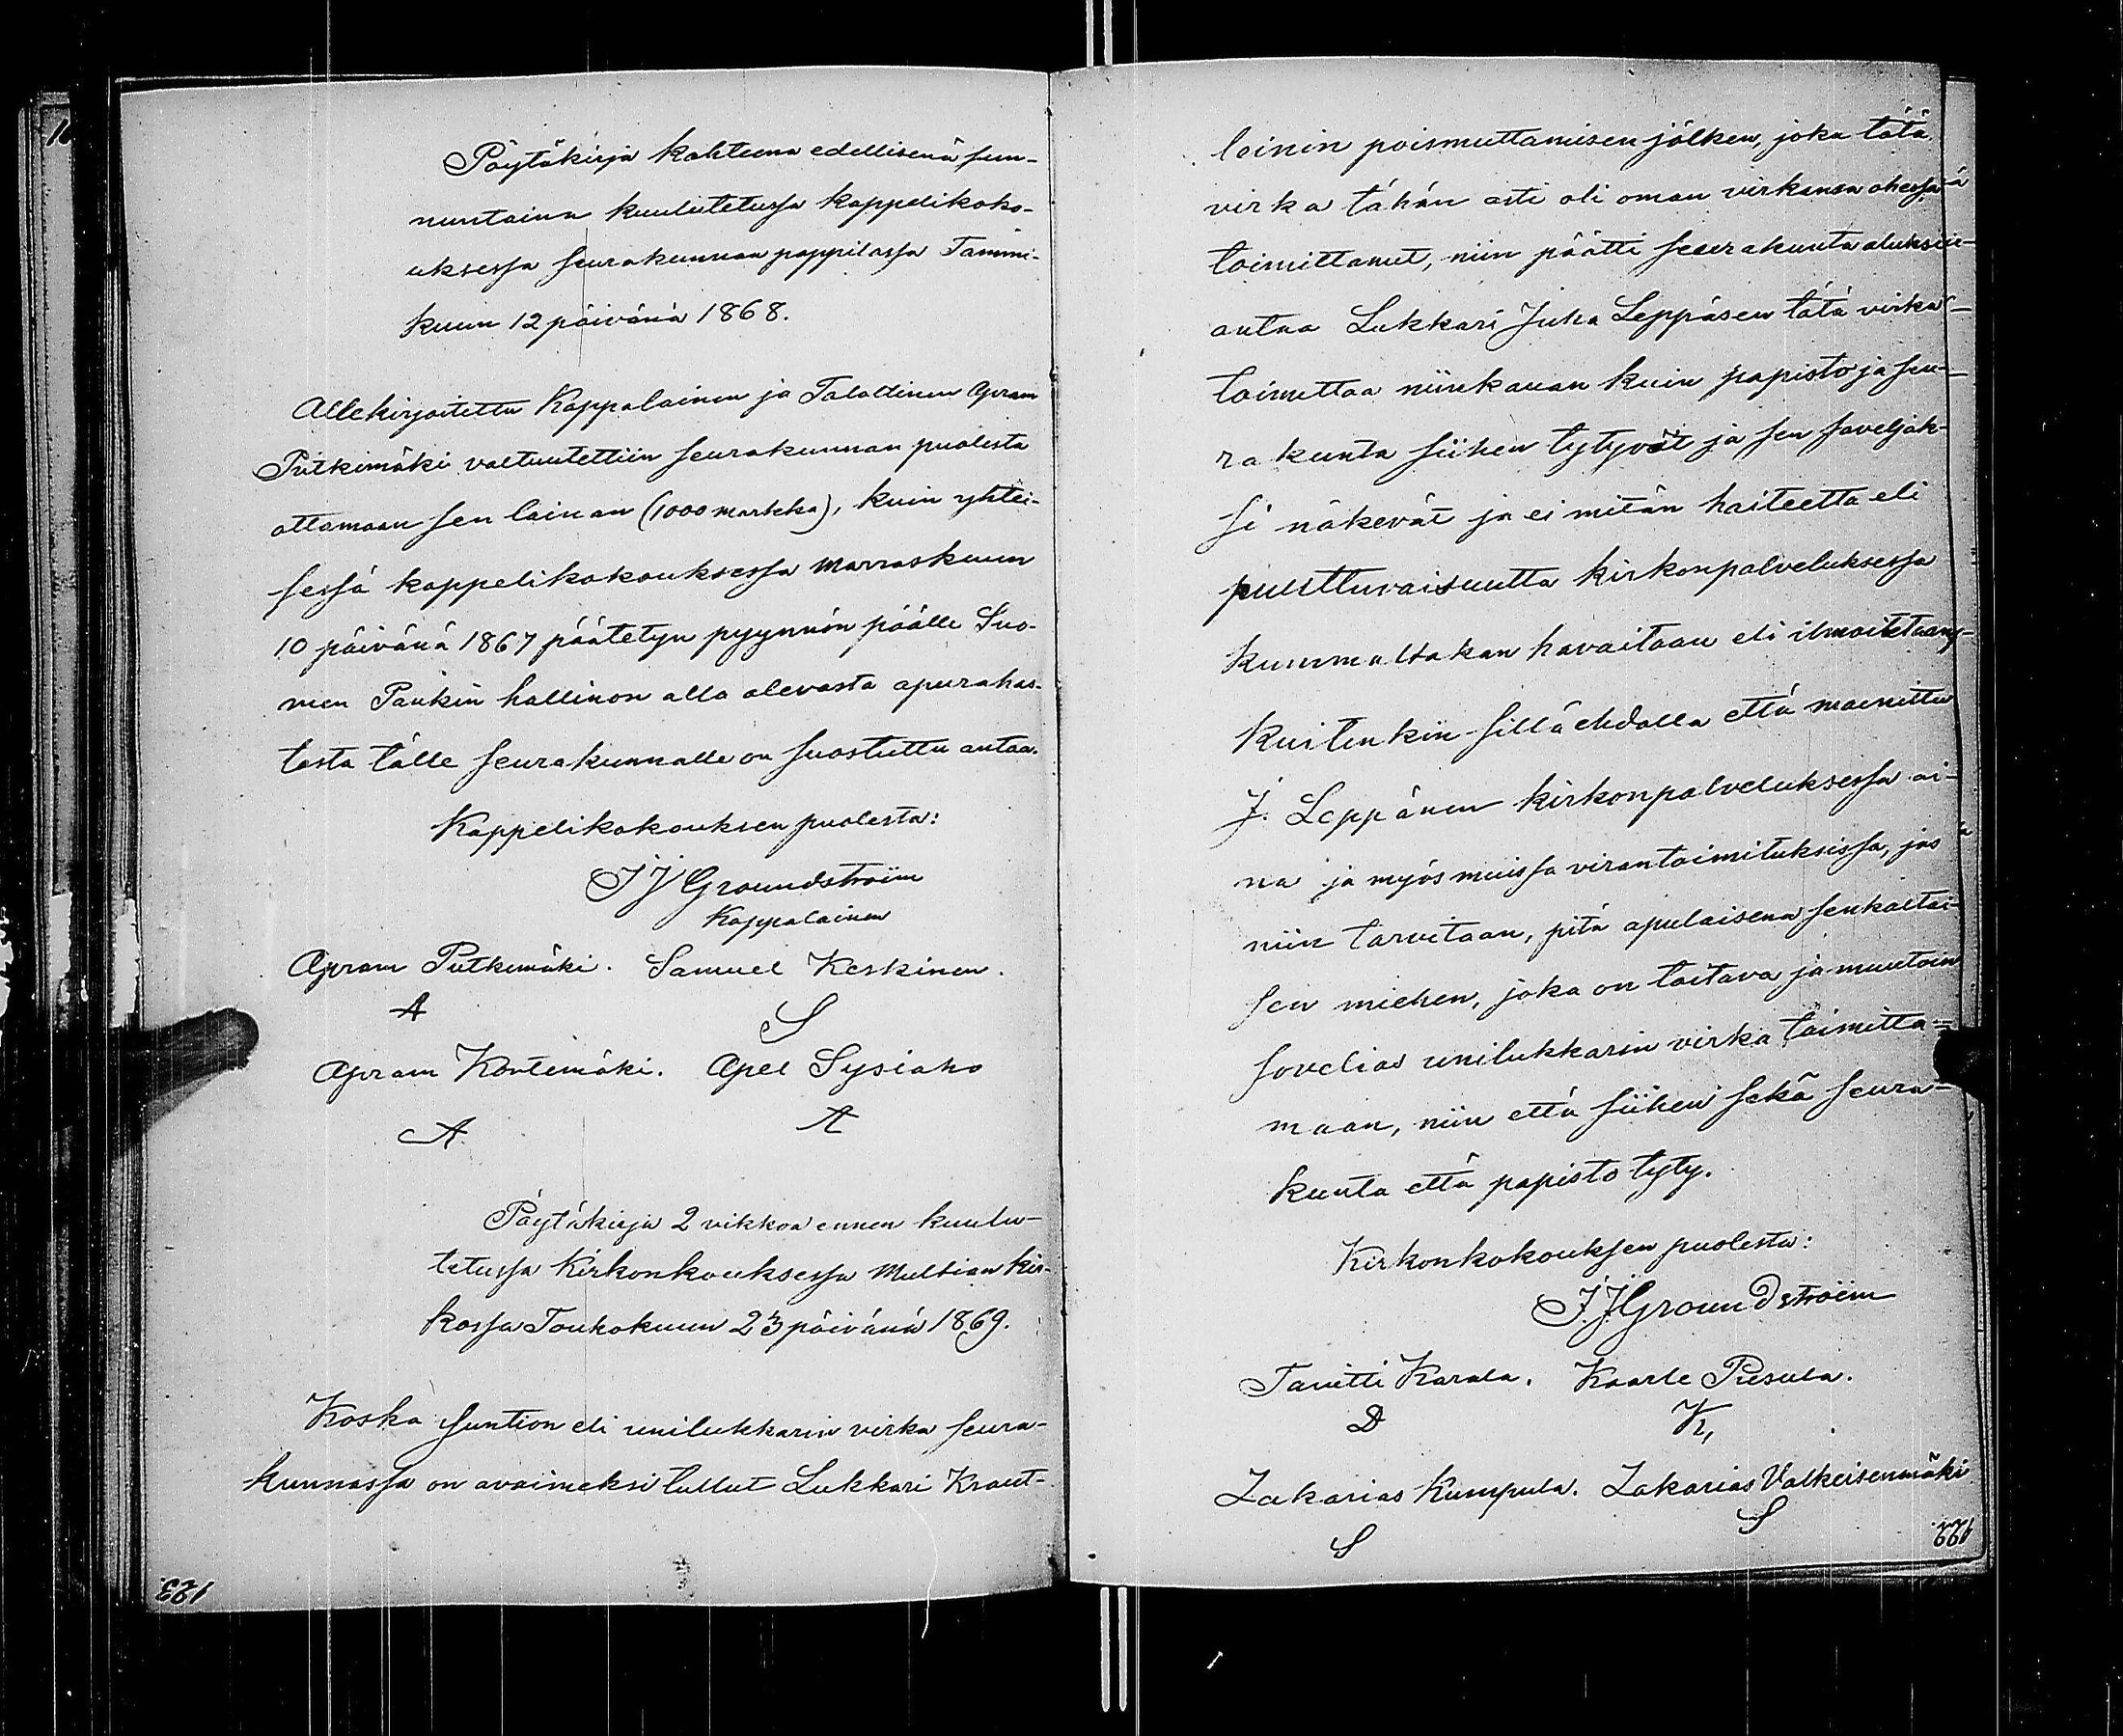 Pöytäkirja kahtena edellisenä sun-
nuntaina kuulutetussa kappelikoko-
uksessa seurakunnan pappilassa Tammi-
kuun 12 päivänä 1868.
Allekirjoitettu Kappalainen ja Talollinen Apram
Putkimäki valtuutettiin seurakunnan puolesta
ottamaan sen lainan (1000 markka), kuin yhtei-
sessä kappelikokouksessa Marraskuun
10 päivänä 1867 päätetyn pyynnön päälle Suo-
men Pankin hallinon alla olevasta apurahas-
tosta tälle seurakunnalle on suostuttu antaa.
Kappelikokouksen puolesta:
J J Groundstroëm
Kappalainen
Apram Putkimäki. Samuel Keskinen.
A S
Apram Kontemäki. Apel Sysiaho
A. A
Pöytäkirja 2 vikkoa ennen kuulu-
tetussa Kirkonkouksessa Multian kir-
kossa Toukokuun 23 päivänä 1869.
Koska suntion eli unilukkarin virka seura-
kunnassa on avoimeksi tullut Lukkari Kraut-
loinin poismuttamisen jälken, joka tätä
virka tähän asti oli oman virkansa ohessa
toimittanut, niin päätti seurakunta aluksi
antaa Lukkari Juha Leppäsen tätä virka
toimittaa niinkauan kuin papisto ja seu-
rakunta siihen tytyvät ja sen soveljak-
si näkevät ja ei mitän haiteetta eli
puuttuvaisuutta kirkonpalveluksessa
kummaltakan havaitaan eli ilmoitetaan,
kuitenkin sillä ehdolla että mainittu
J. Leppänen kirkonpalveluksessa ai-
na ja myös muissa virantoimituksissa, jos
niin tarvitaan, pitä apulaisena senkaltai-
sen miehen, joka on taitava ja muutoin
sovelias unilukkarin virka toimitta-
maan, niin että siihen sekä seura-
kunta että papisto tyty.
Kirkonkokouksen puolesta:
J.J Groundstroëm
Tavitti Karala. Kaarle Piesala.
D K,
Zakarias Kumpula. Zakarias Valkeisenmäki
S S
122.
123.